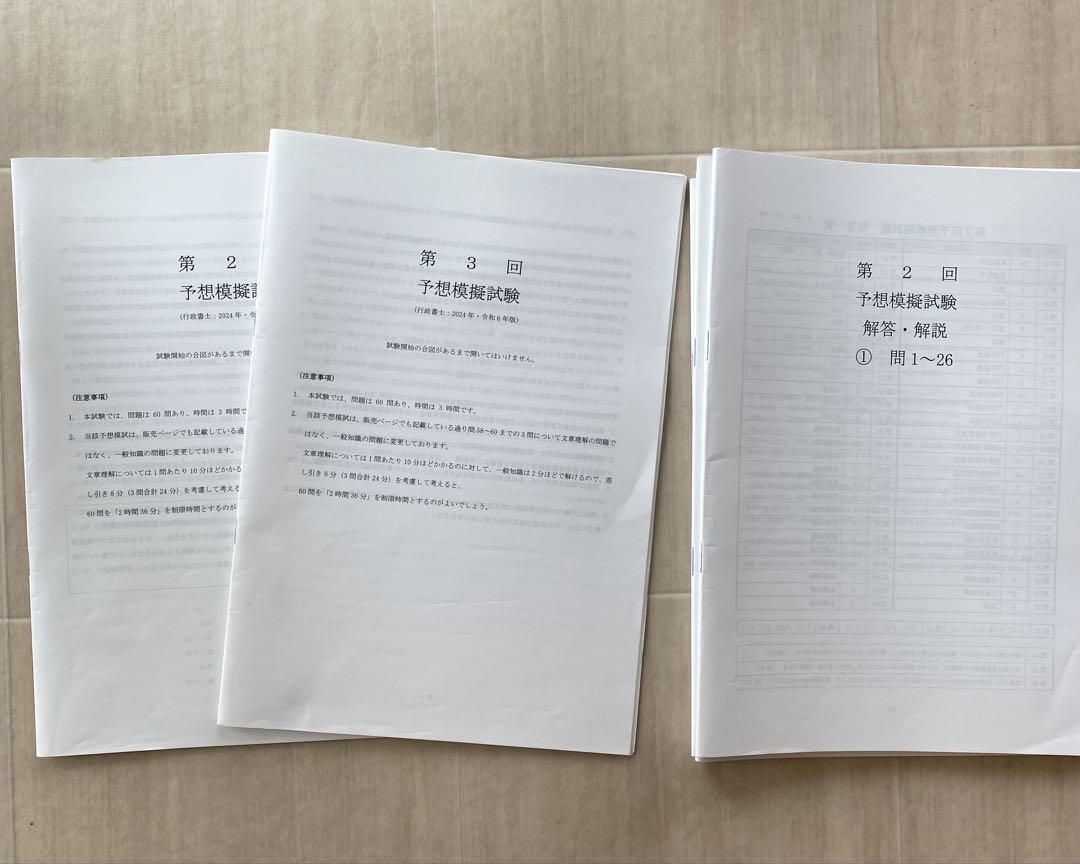 第 2
予想模擬試
(行政書士：2024年・令
試験開始の合図があるまで開い
(注意事項)
1. 本試験では、問題は 60 問あり、時間は 3 時間で
2. 当該予想模試は、販売ページでも記載している通
はなく、一般知識の問題に変更しております。
文章理解については1問あたり10分ほどかかる
し引き8分（3問合計24分）を考慮して考える
60問を「2時間36分」を制限時間とするのが
第 3 回
予想模擬試験
(行政書士：2024年・令和6年版)
試験開始の合図があるまで開いてはいけません。
(注意事項)
1. 本試験では、問題は 60 問あり、時間は 3 時間です。
2. 当該予想模試は、販売ページでも記載している通り問58～60までの3問について文章理解の問題で
はなく、一般知識の問題に変更しております。
文章理解については1問あたり10分ほどかかるのに対して、一般知識は2分ほどで解けるので、差
し引き8分（3問合計24分）を考慮して考えると、
60問を「2時間36分」を制限時間とするのがよいでしょう。
第 2 回
予想模擬試験
解答・解説
① 問1～26